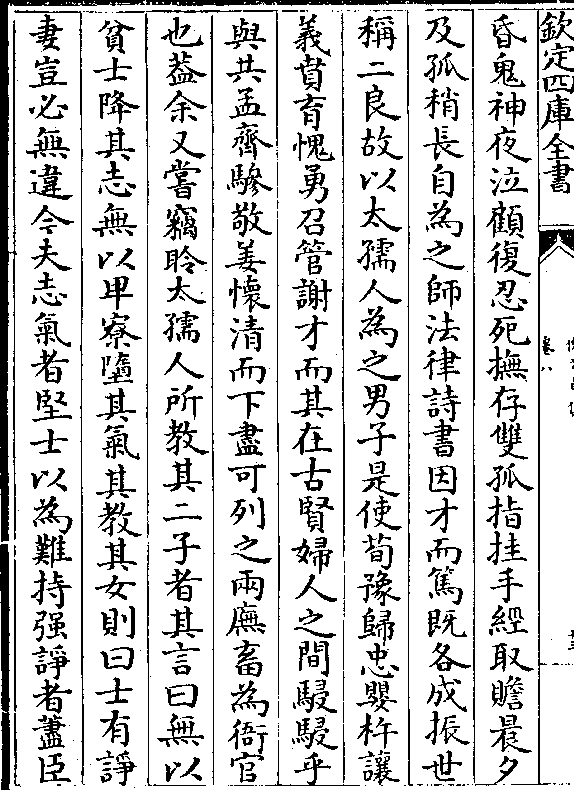 欽定四庫全書
卷八
昏鬼神夜泣顧復忍死撫存雙孤指挂手經取贍晨夕
及孤稍長自為之師法律詩書因才而篤既各成振世
稱二良故以太孺人為之男子是使荀豫歸忠嬰杵讓
義賁育愧勇召管謝才而其在古賢婦人之間駸駸乎
與共孟齊驂敬姜懷清而下盡可列之兩廡畜為衙官
也葢余又嘗竊聆太孺人所教其二子者其言曰無以
貧士降其志無以甲寮墮其氣其教其女則曰士有諍
妻豈必無違今夫志氣者堅士以為難持强諍者藎臣